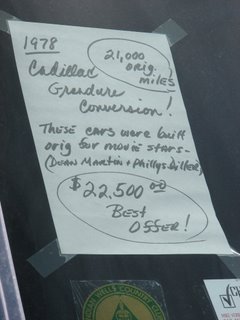 1978
21,000
orig.
miles
Cadillac
Grandure
Conversion!
These cars were built
orig for movie stars-
(Dean Martin & Phillys Diller)
$22,500 00
Best
Offer!
WELLS COUNTRY CLUB